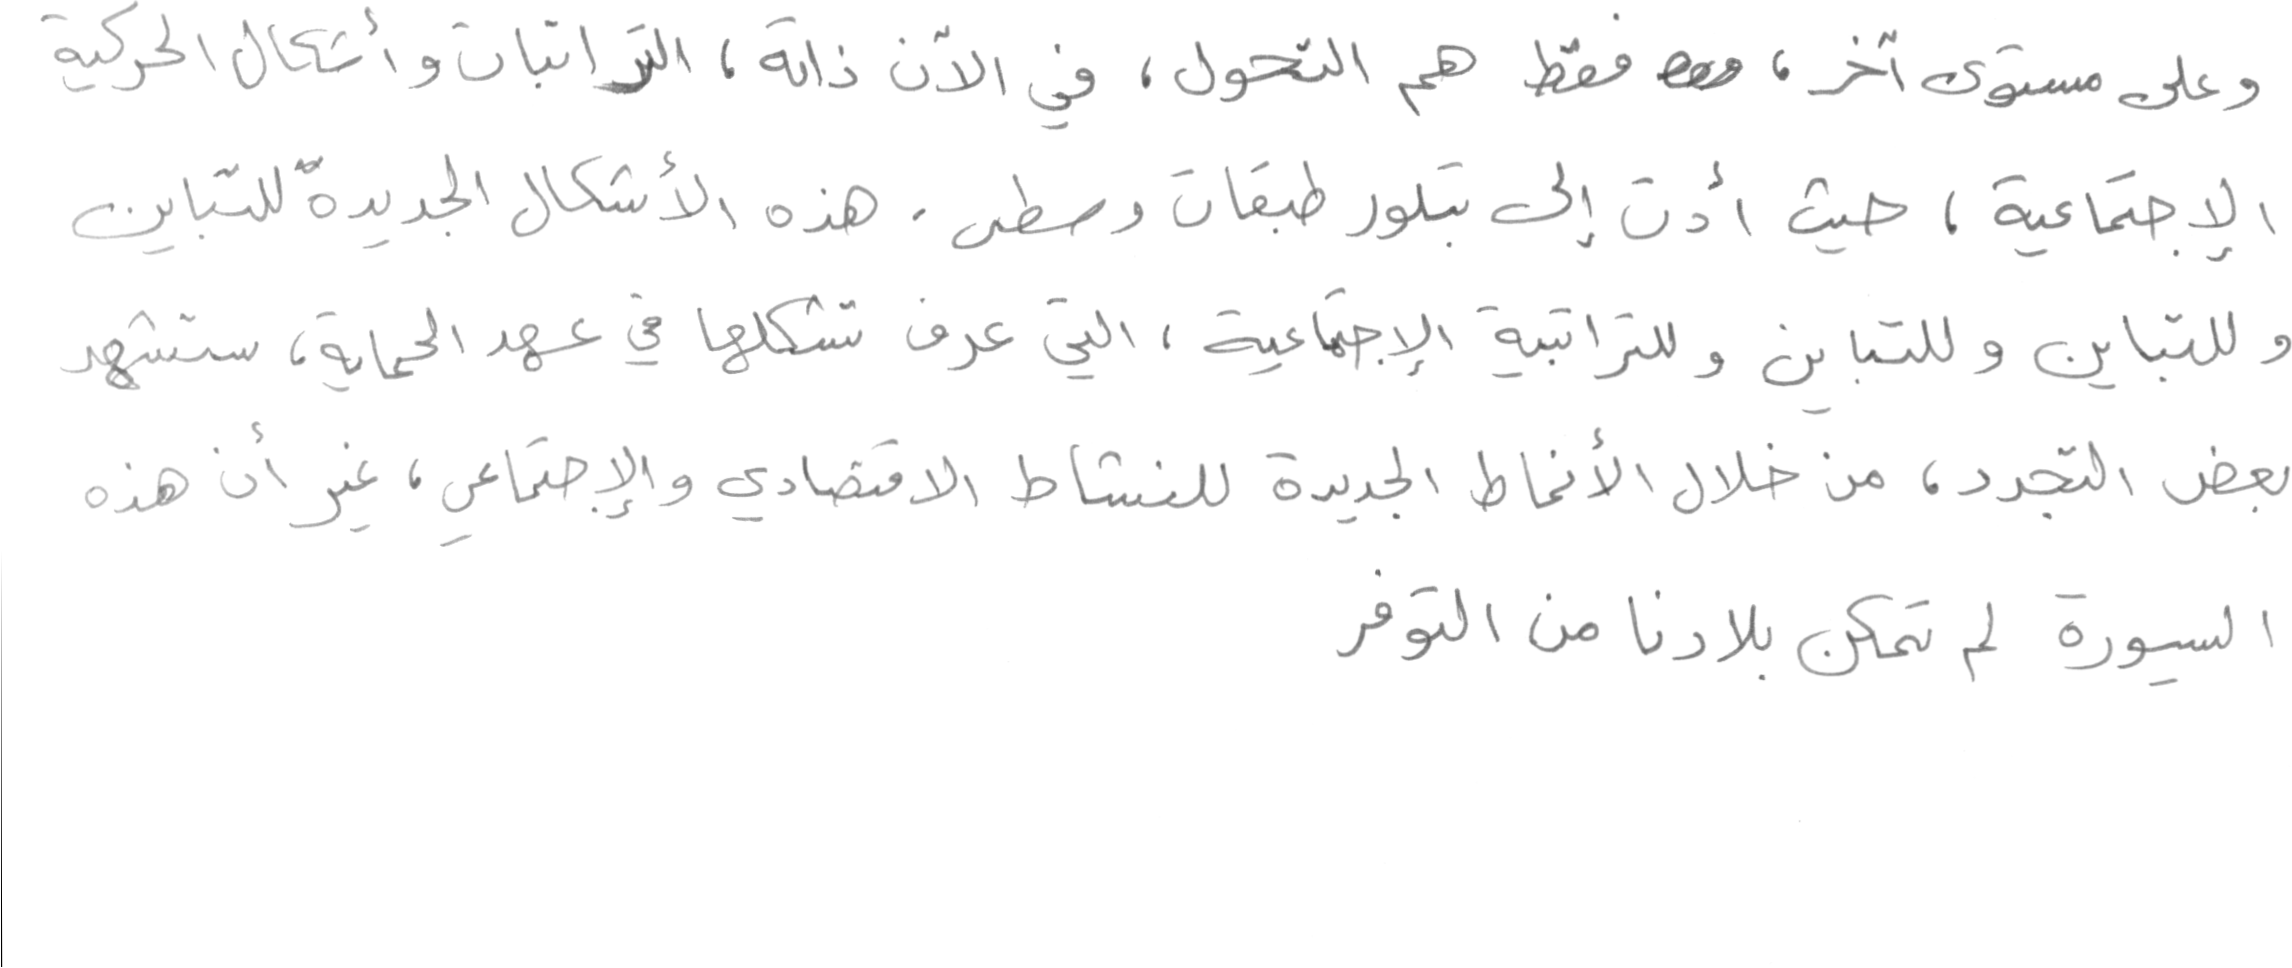 وعلى مستوى آخر، فقط هم التحول، في الآن ذاته، التراتبات وأشكال الحركية
الإجتماعية، حيث أدت إلى تبلور طبقات وسطى. هذه الأشكال الجديدة للتباين
وللتباين وللتباين وللتراتبية الإجتماعية، التي عرف تشكلها في عهد الحماية، ستشهد
بعض التجدد، من خلال الأنماط الجديدة للنشاط الاقتصادي والإجتماعي، غير أن هذه
السيورة لم تمكن بلادنا من التوفر